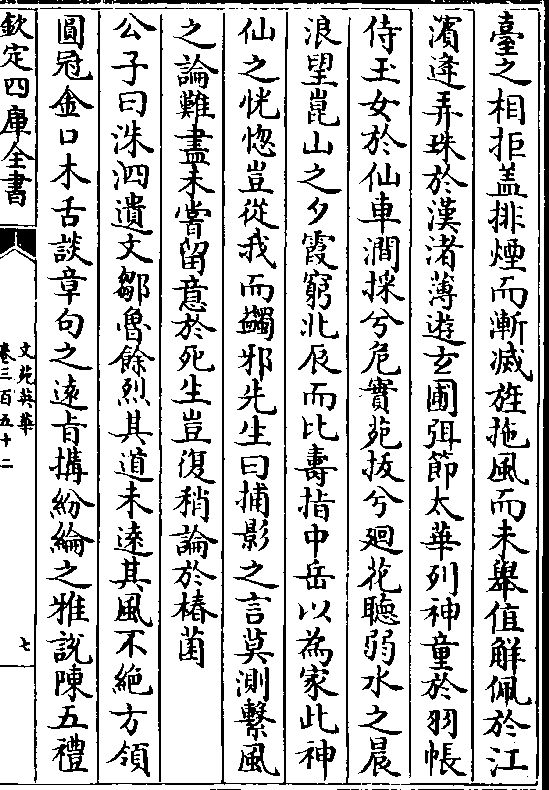 臺之相拒盖排煙而漸滅旌拖風而未舉值解佩於江
濱逢弄珠於漢渚薄遊玄圃弭節太華列神童於羽帳
侍玉女於仙車澗採兮危實苑扳兮迴花聽弱水之晨
浪望崑山之夕霞窮北辰而比壽指中岳以為家此神
仙之恍惚豈從我而蠲邪先生曰捕影之言莫測繫風
之論難盡未嘗留意於死生豈復稍論於椿菌
公子曰洙泗遺文鄒魯餘烈其道未逺其風不絶方領
圓冠金口木舌談章句之逺旨搆紛綸之雅説陳五禮
欽定四庫全書
文苑英華
卷三百五十二
七